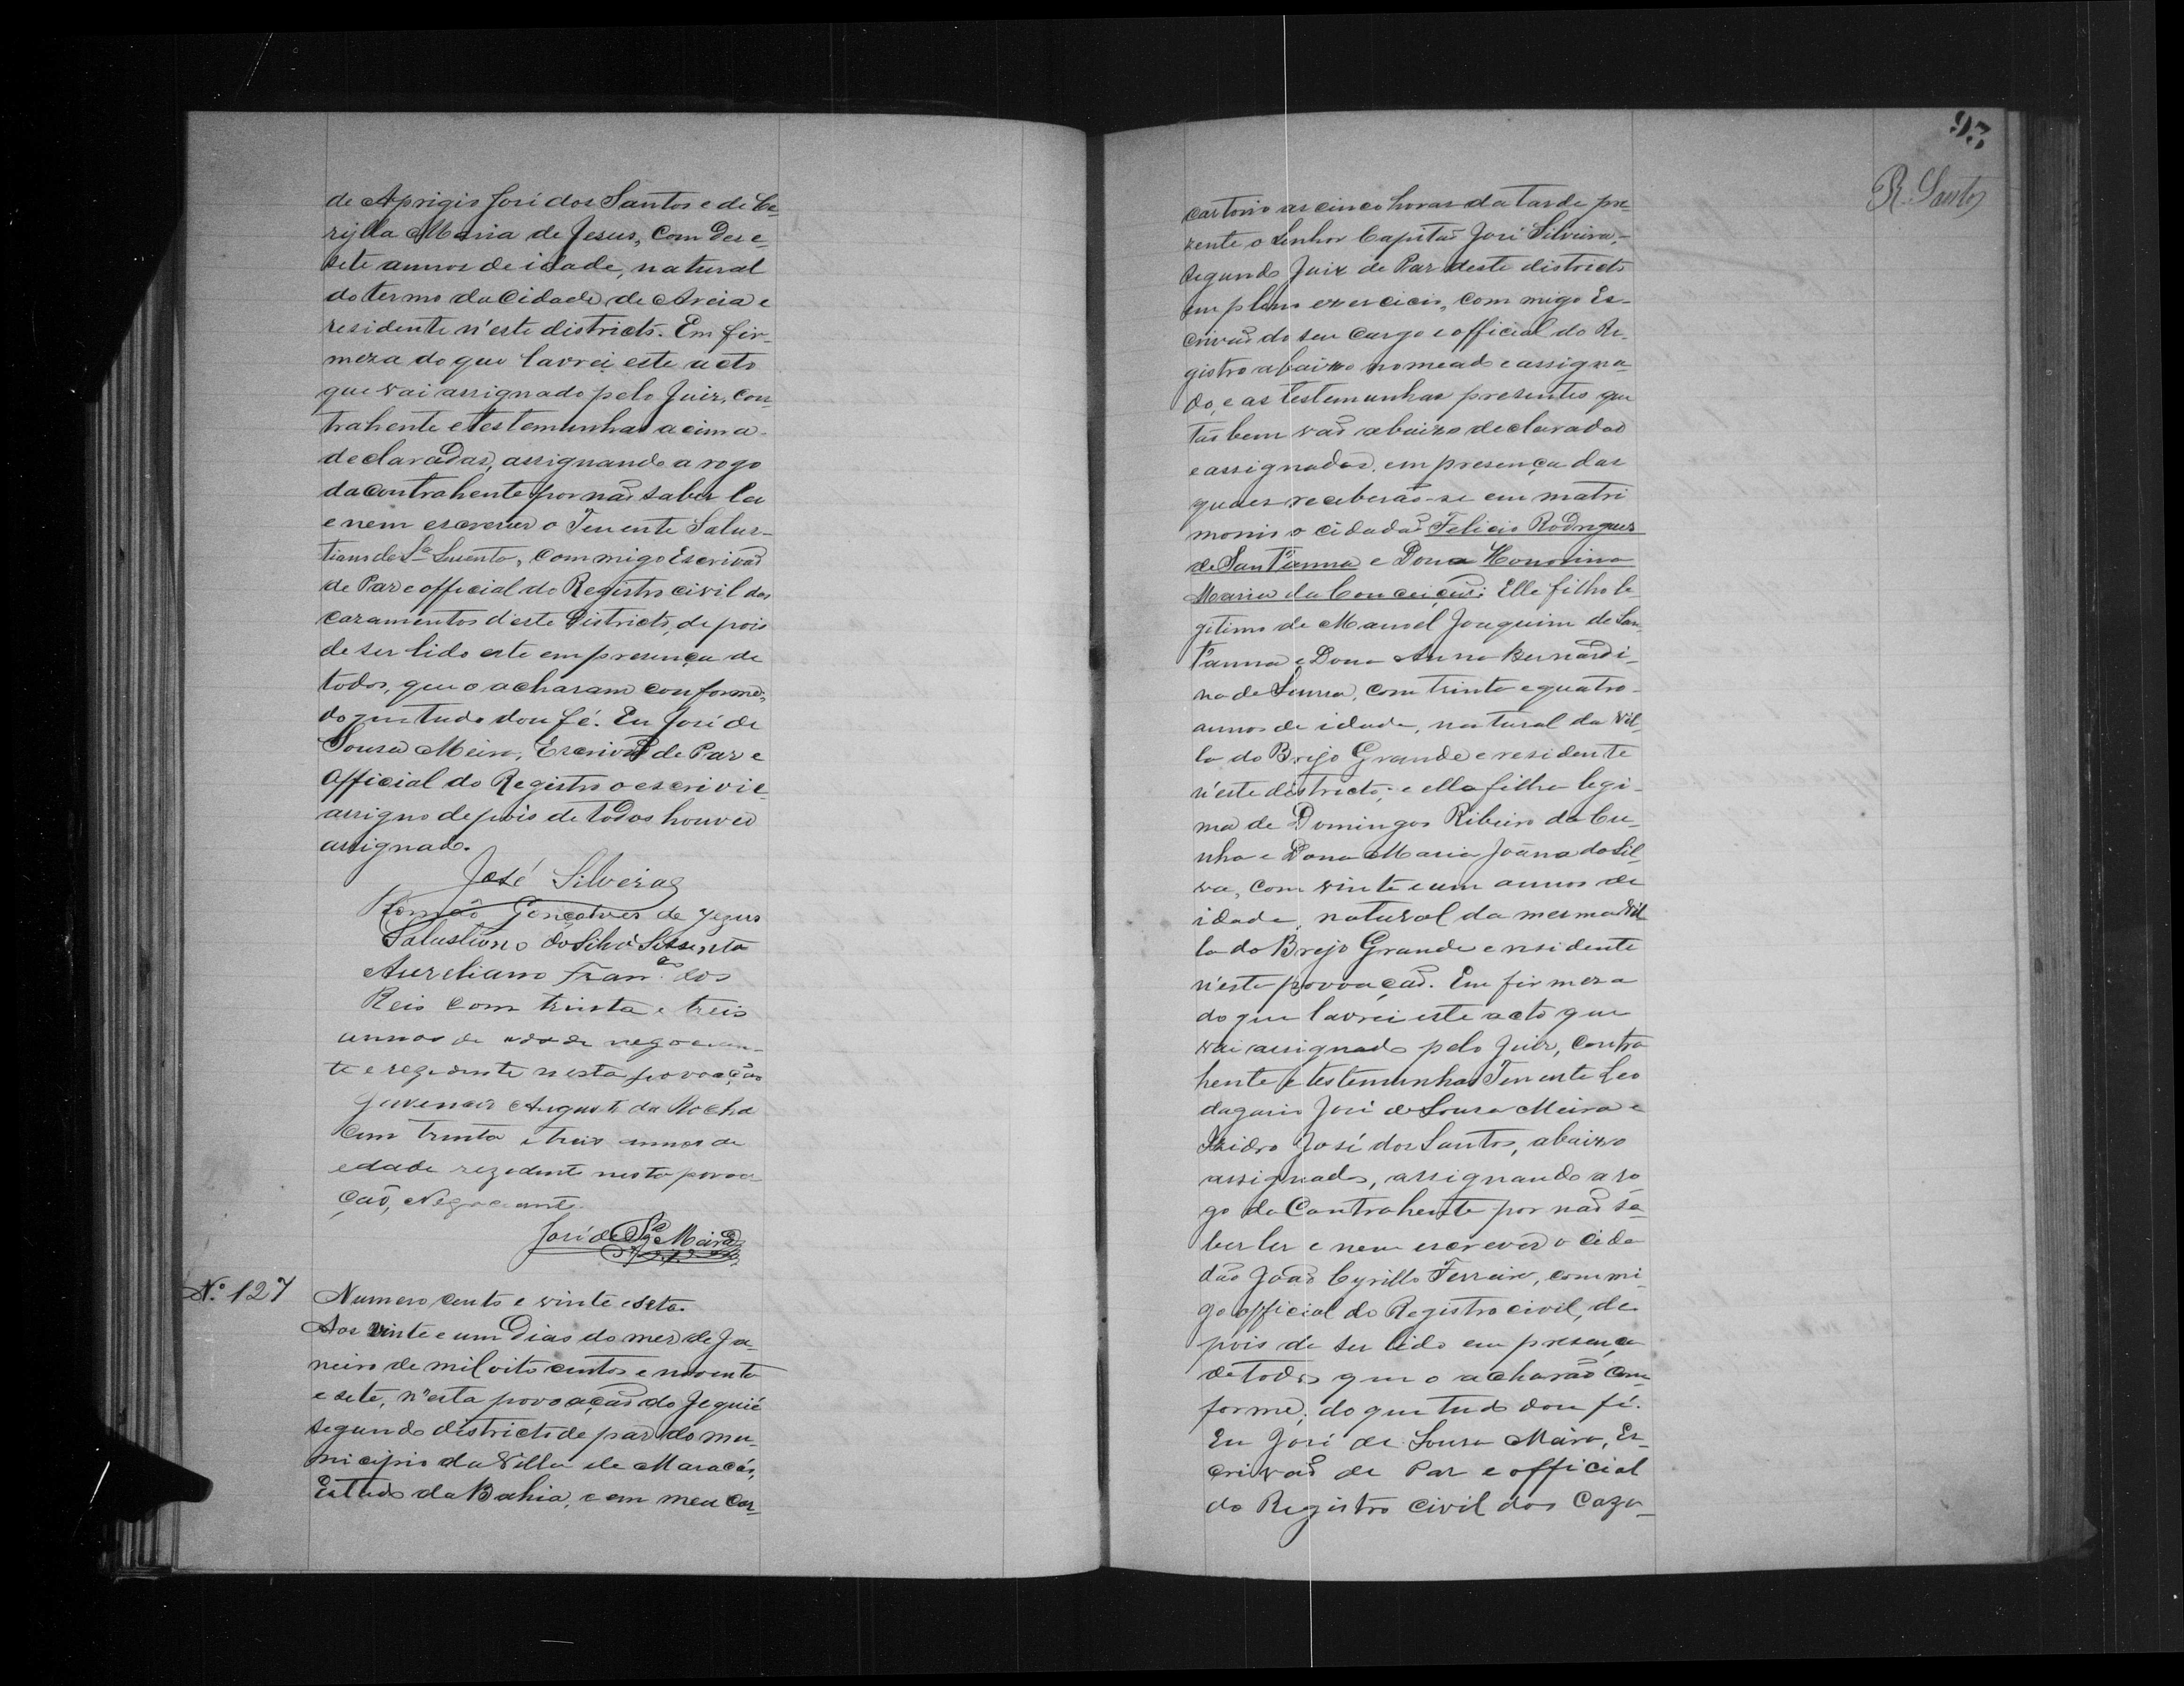 de Aprigio José dos Santos e de Ce-
rylla Maria de Jesus, com dese-
sete annos de idade, natural
do termo da Cidade de Areia e
residente n'este districto. Em fir-
meza do que lavrei este acto
que vai assignado pelo Juiz, con-
trahente e testemunhas acima
declaradas, assignando a rogo
da contrahente por não saber ler
e nem escrever o Tenente Salus-
tiano da Sª Sucento, commigo Escrivão
de Paz e official do Registro civil dos
cazamentos d'este Districto, depois
de ser lido este em presença de
todos, que o acharam conforme,
do que tudo dou fé. Eu José de
Sousa Meira, Escrivão de Paz e
Official do Registro o escrivi e
assigno depois de todos houver
assignado.
José Silveira
Romão Gonçalves de Jezus
Salustiano da Silva
Aureliano Fran.co dos
Reis com trinta e treis
annos de idade negocian-
te e rezidente nesta povoação
Juvenal Augusto da Rocha
com trinta e treis annos de
edade rezidente nesta povoa
ção, Negociante.
José de Sza Meira
N.º 127
Numero cento e vinte e sete.
Aos vinte e um dias do mez de Ja-
neiro de mil oito centos e noventa
e sete, n'esta povoação do Jequié
segundo districto de paz do mu-
nicipio da Villa de Maracás,
Estado da Bahia, e em meu car-
93
R. Santos
cartorio as cinco horas da tarde pre-
zente o Senhor Capitão José Silveira,
segundo Juiz de Paz deste districto
em pleno exercicio, commigo Es-
crivão do seu cargo e official do Re-
gistro abaixo nomeado e assigna-
do, e as testemunhas presentes que
tão bem vão abaixo declaradas
e assignadas, em presença das
quaes receberão-se em matri
monio o cidadão Felicio Rodrigues
de Sant'anna e Dona Honorina
Maria da Conceição: Elle filho le-
gitimo de Manoel Joaquim de San-
t'anna e Dona Anna Bernardi-
na de Souza, com trinta e quatro
annos de idade, natural da Vil-
la do Brejo Grande e residente
n'este districto; e ella filha legi-
ma de Domingos Ribeiro da Cu-
nha e Dona Maria Joana da Sil-
va, com vinte e um annos de
idade, natural da mesma Vil
la do Brejo Grande e residente
n'esta povoação. Em firmeza
do que lavrei este acto que
vai assignado pelo Juiz, contra
hente e testemunhas Tenente Leo
dagario José de Souza Meira e
Izidro José dos Santos, abaixo
assignados, assignando a ro
go da Contrahente por não sa-
ber ler e nem escrever o cida
dão João Cyrillo Ferreira, commi-
go official do Registro civil, de-
pois de ser lido em presença
de todos que o acharão con-
forme; do que tudo dou fé.
Eu José de Sousa Meira, Es-
crivão de Paz e official
do Registro civil dos Caza-